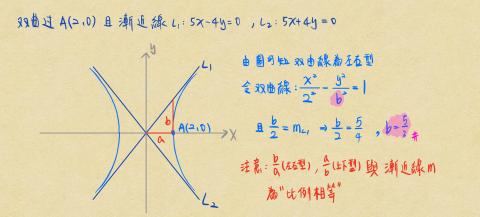 双曲过 A(2,0) 且漸近線 L₁: 5x-4y=0 , L₂: 5x+4y=0
y
L₁
b
A(2,0)
a
x
L₂
由圖可知 双曲線為左右型
令双曲線: x²/2² - y²/b² = 1
且 b/2 = m_L₁ ⇒ b/2 = 5/4 , b = 5/2 #
注意: b/a (左右型) , a/b (上下型) 與 漸近線 m
為 "比例相等"